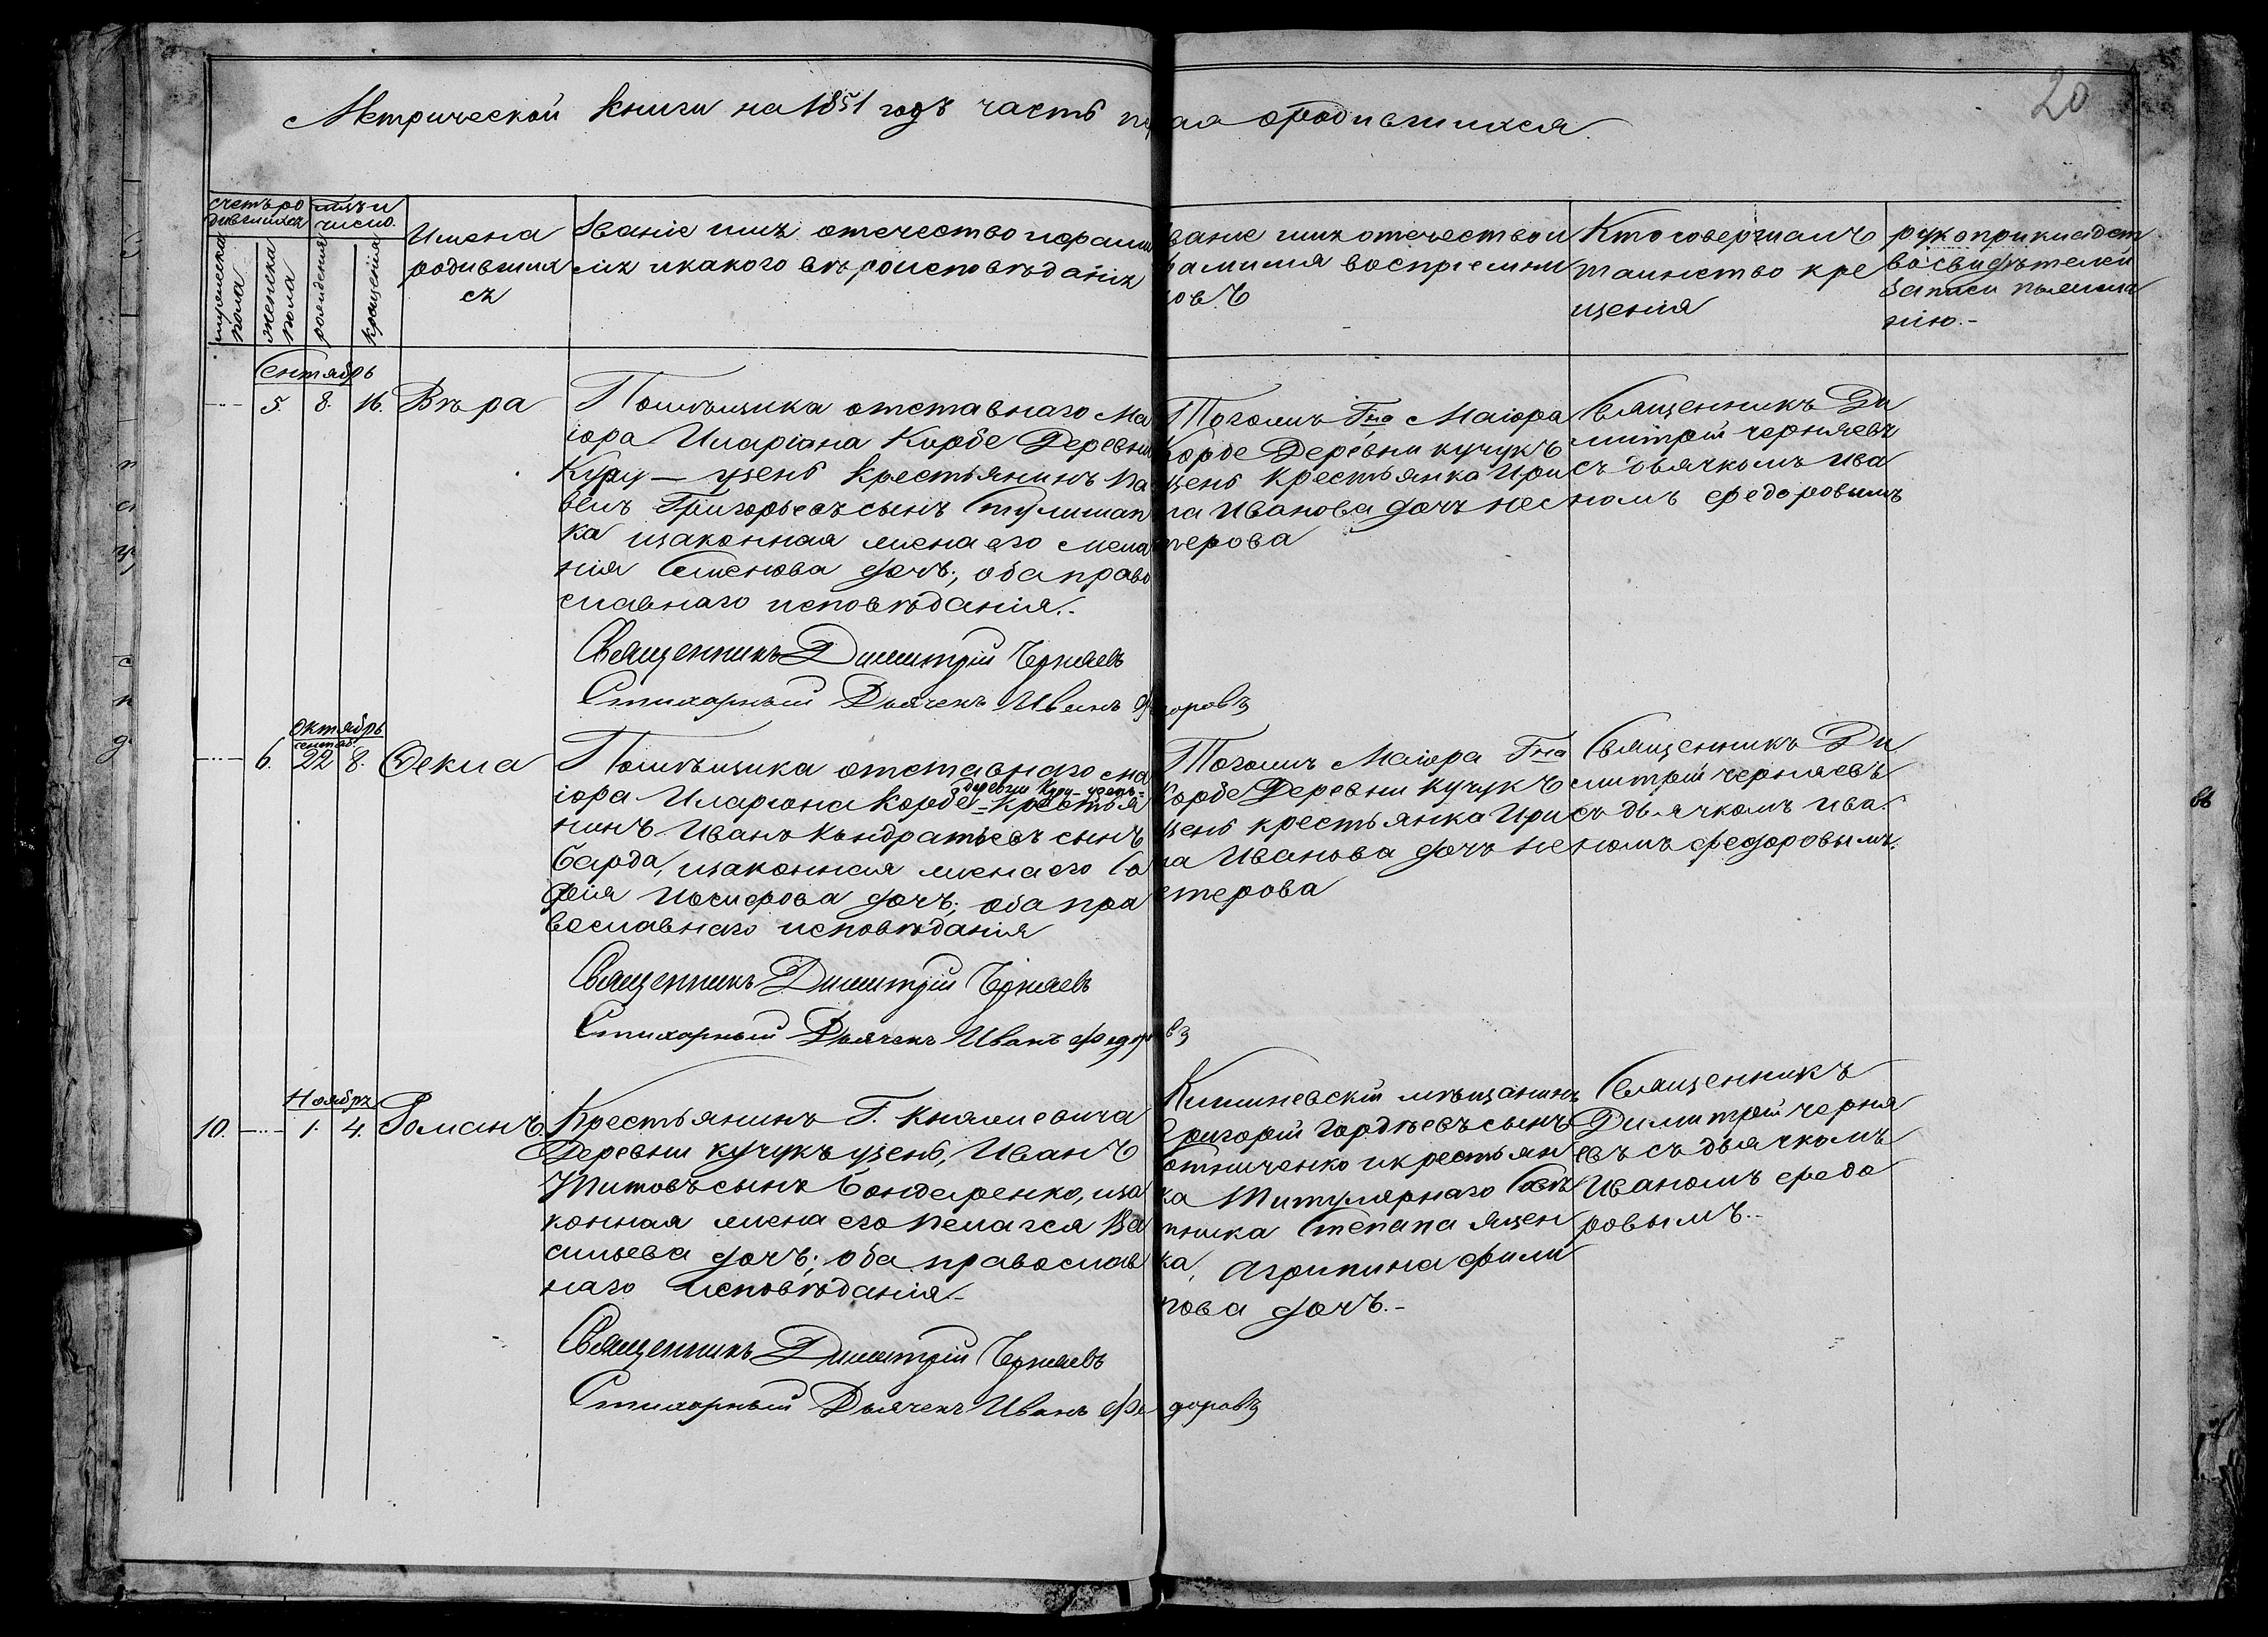 20
Метрической книги на 1851 годъ часть пе ая ородившихся.
счетъ ро
дившихся
мцъ и
число.
мужеска
пола
женска
пола
рожденія
крещенія
Имена
родивших
ся
Званіе имя отечество ифамил
ія икакого вѣроисповѣданія
Званіе имя отечествои
фамилія воспріемни
ковъ
Кто совершалъ
таинство кре
щенія
рукоприкладст
восвидѣтелей
записи пожела
нію.-
Сентябрь
5. 8. 16. Вѣра
Помѣщика отставнаго ма
іора Иларіана Корбе Деревни
Куру — узень крестьянинъ Па
велъ Григорьевъ сынъ
ка изаконная жена его Мела
нія Семенова дочь; оба право
славнаго исповѣданія.-
Священникъ Димитрій Черняевъ
Стихарный Дьячекъ Иванъ Федоровъ
Тогожъ Гна Маіора
Корбе Деревни кучукъ
узень крестьянка Ири
на Иванова дочь Нес
терова
Священникъ Ди
митрій черняевъ
съ дьячкомъ Ива
номъ федоровымъ
Октябрь
сентяб.
6. 22 8. Ѳекла
Помѣщика отставнаго ма
деревни Куру-узень-
іора Иларіона Корбе - крестья
нинъ Иванъ Кондратьевъ сынъ
Барда, изаконная жена его Со
фія Иосифова дочь; оба пра
вославнаго исповѣданія
Священникъ Димитрій Черняевъ
Стихарный Дьячекъ Иванъ Федоровъ
Тогожъ Маіора Гна
Корбе Деревни Кучукъ
узень крестьянка Ири
на Иванова дочь Не
стерова
Священникъ Ди
митрій черняевъ
съ дьячкомъ Ива
номъ федоровымъ.
Ноябрь
10. 1. 4. Романъ.
Крестьянинъ Г. Княжевича
Деревни кучукъ узень, Иванъ
Титовъ сынъ Бондаренко, иза
конная жена его Пелагея Ва
сильева дочь; оба православ
наго исповѣданія-
Священникъ Димитрій Черняевъ
Стихарный Дьячекъ Иванъ Федоровъ
Кишиневскій мѣщанинъ
Григорій Гордѣевъ сынъ
икрестьян
ка Титулярнаго Совѣ
тника Степана Ящен
ка, Агрипина Фили
пова дочь.-
Священникъ
Димитрій черня
евъ съ дьячкомъ
Иваномъ федо
ровымъ.-